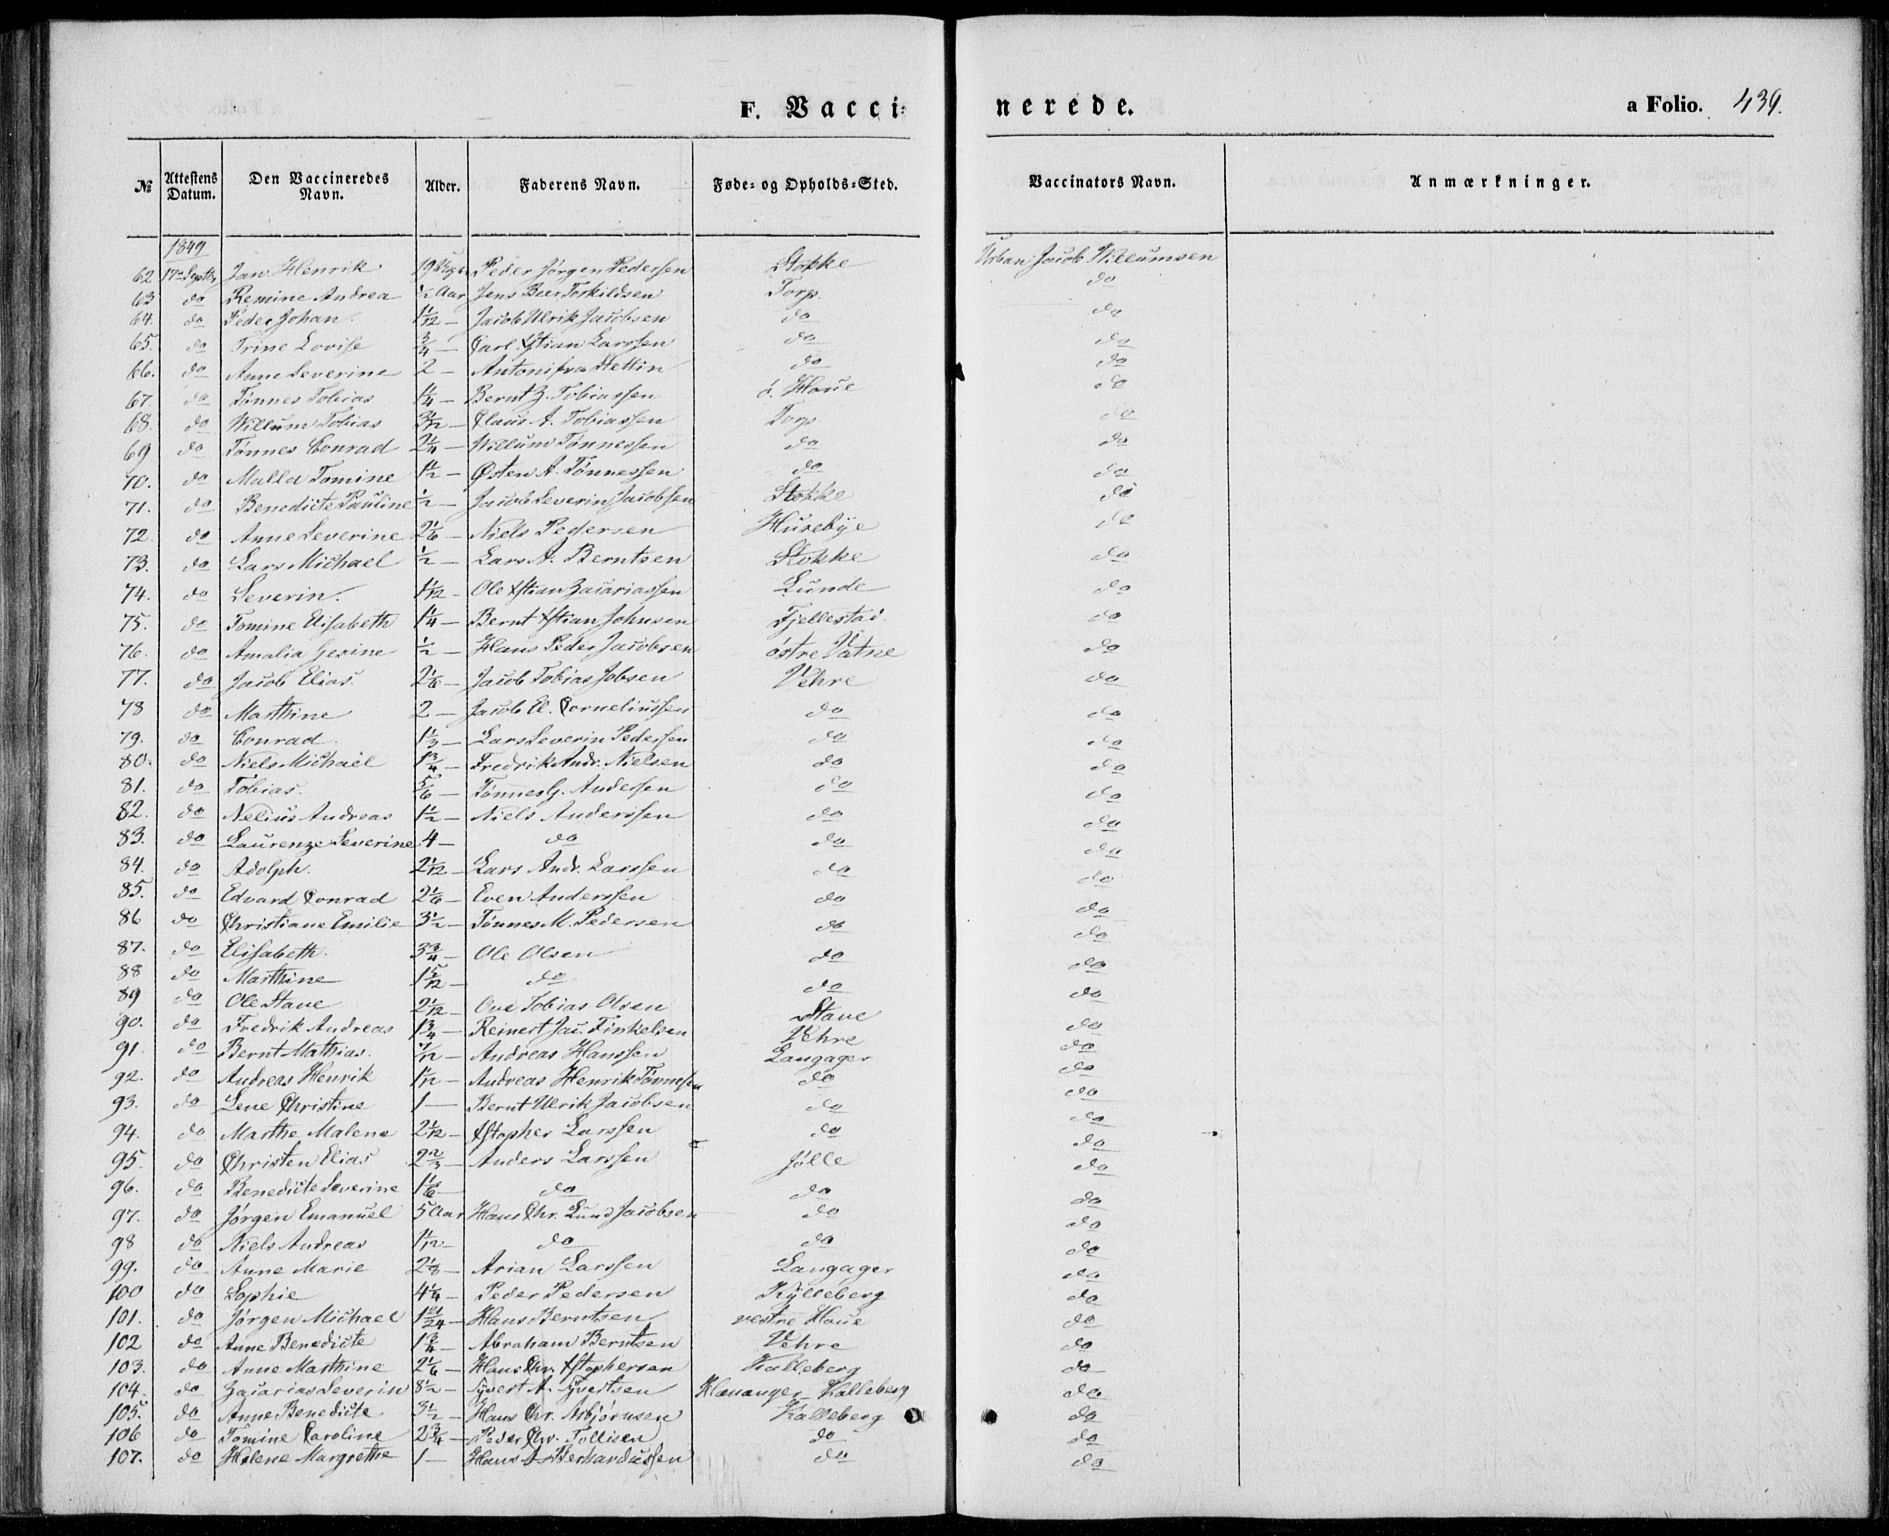 F. Vacci= nerede. a Folio. 439.
№ Attestens Datum. Den Vaccineredes Navn. Alder. Faderens Navn. Føde= og Opholds=Sted. Vaccinators Navn. Anmærkninger.
1849
62 17de Septbr Jan Henrik 19 Uger Peder Jørgen Pedersen Stokke Urban Jacob Willumsen
63 do Remine Andrea ½ Aar Jens Beer Torkildsen Torp. do
64. do Peder Johan. 1 1/12 — Jacob Ulrik Jacobsen do do
65. do Trine Lovise 3/4 — Carl Xstian Larssen do do
66. do Anne Severine 2 — Antoni fra Stettin do do
67. do Tønnes Tobias 1 1/4 — Bernt Z. Tobiassen ö. Haue do
68. do Willum Tobias 3 1/12 — Claus A. Tobiassen Torp do
69 do Tønnes Conrad 2 1/4 — Willum Tønnessen do do
70. do Malla Tomine 1 1/2 — Østen A. Tønnessen do do
71. do Benedicte Pauline 1/2 — Jacob Severin Jacobsen Stokke do
72. do Anne Severine 2 1/6 — Niels Pedersen Husebÿe do
73. do Lars Michael 1/2 — Lars A. Berntsen Stokke do
74. do Severin. 1 1/12 - Ole Xstian Zacariassen Lunde do
75. do Tomine Elisabeth 1 1/4 — Bernt Xstian Johnsen Fjellestad. do
76. do Amalia Gesine 1/2 — Hans Peder Jacobsen østre Vatne do
77. do Jacob Elias. 2 1/6 — Jacob Tobias Jobsen Vehre do
78 do Marthine 2 — Jacob El. Corneliussen do do
79. do Conrad 1 1/3 — Lars Severin Pedersen do do
80. do Niels Michael 1 3/4 — Fredrik Andr. Nielsen do do
81. do Tobias. 5/6 — Tønnes G. Andersen do do
82. do Nelius Andreas 1 1/2 — Niels Anderssen do do
83. do Laurenze Severine 4 — do do do
84. do Adolph. 2 1/12 — Lars Andr. Larssen do do
85. do Edvard Conrad 2 1/6 — Even Anderssen do do
86 do Christiane Emilie 3 1/2 — Tønnes M. Pedersen do do
87. do Elisabeth. 3 3/4 — Ole Olsen do do
88 do Marthine 1 5/12 — do do do
89 do Ole Staue 2 1/12 — Ove Tobias Olsen Staue do
90. do Fredrik Andreas 1 3/4 — Reinert Jac. Finkelsen Vehre do
91. do Bernt Mathias. 7/12 — Andreas Hanssen Langager do
92. do Andreas Henrik 1 1/12 — Andreas Henrik Tønnesen do do
93. do Lene Christine 1 — Bernt Ulrik Jacobsen do do
94. do Marthe Malene 2 1/12 — Xstopher Larssen do do
95. do Christen Elias 2 2/3 — Anders Larssen Jølle do
96. do Benedicte Severine 1 1/6 — do do do
97. do Jørgen Emanuel 5 Aar Hans Chr. Lund Jacobsen do do
98 do Niels Andreas 1 1/12 — do do do
99. do Anne Marie 2 1/8 — Arian Larssen Langager do
100 do Sophie 4 1/4 — Peder Pedersen Kÿlleberg do
101. do Jørgen Michael 1 21/24 — Hans Berntsen vestre Haue do
102 do Anne Benedicte 1 3/4 — Abraham Berntsen Vehre do
103. do Anne Marthine 2 1/6 — Hans Chr. Xstophersen Kalleberg do
104. do Zacarias Severin 8 1/2 — Syvert A. Syvertsen Hauanger - Kalleberg do
105. do Anne Benedicte 3 1/2 — Hans Chr. Asbjørnsen Kalleberg do
106 do Tomine Caroline 2 3/4 — Peder Chr. Tollisen do do
107. do Helene Margrethe 1 — Hans A. Berhardussen do do